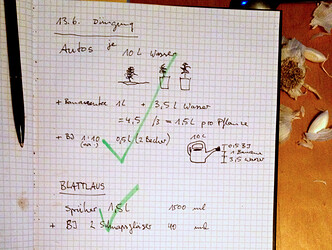 13.6. Düngung
Autos je 10L Wasser
+ Bananenwasser 1L + 3,5L Wasser
= 4,5 /3 = 1,5L pro Pflanze
+ BJ 1:10 0,5L (2 Becher)
10L
0,5 BJ
1 Banane
3,5 Wasser
BLATTLAUS
Sprüher 1,5L 1500 ml
+ BJ 2 Schnapsgläser 40 ml